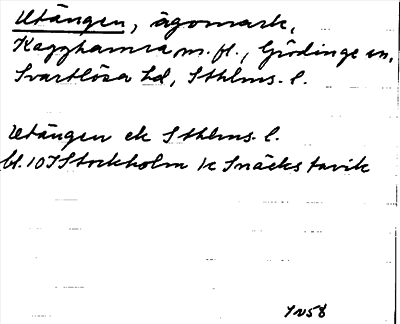 Utängen, ägomark,
Kagghamra m. fl., Grödinge sn,
Svartlösa hd, Sthlms. l.
Utängen ek Sthlms. l.
bl. 107 Stockholm k Snäckstavik
1958